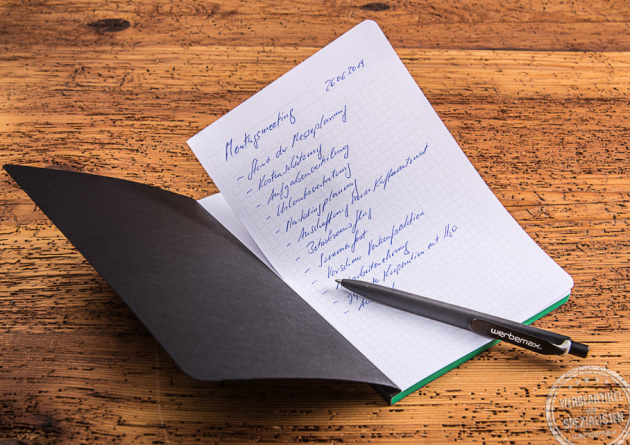 26.06.2019
Montagsmeeting
- Stand der Messeplanung
- Kostenschätzung
- Aufgabenverteilung
- Urlaubsvertretung
- Marketingplanung
- Anschaffung neuer Kaffeeautomat
- Betriebsausflug
- Sommerfest
- Vorschau Verkaufsaktion
- Mitarbeiterehrung
Kooperation mit H2O
werbemax.
WERBEARTIKEL
SPEZIALISTEN